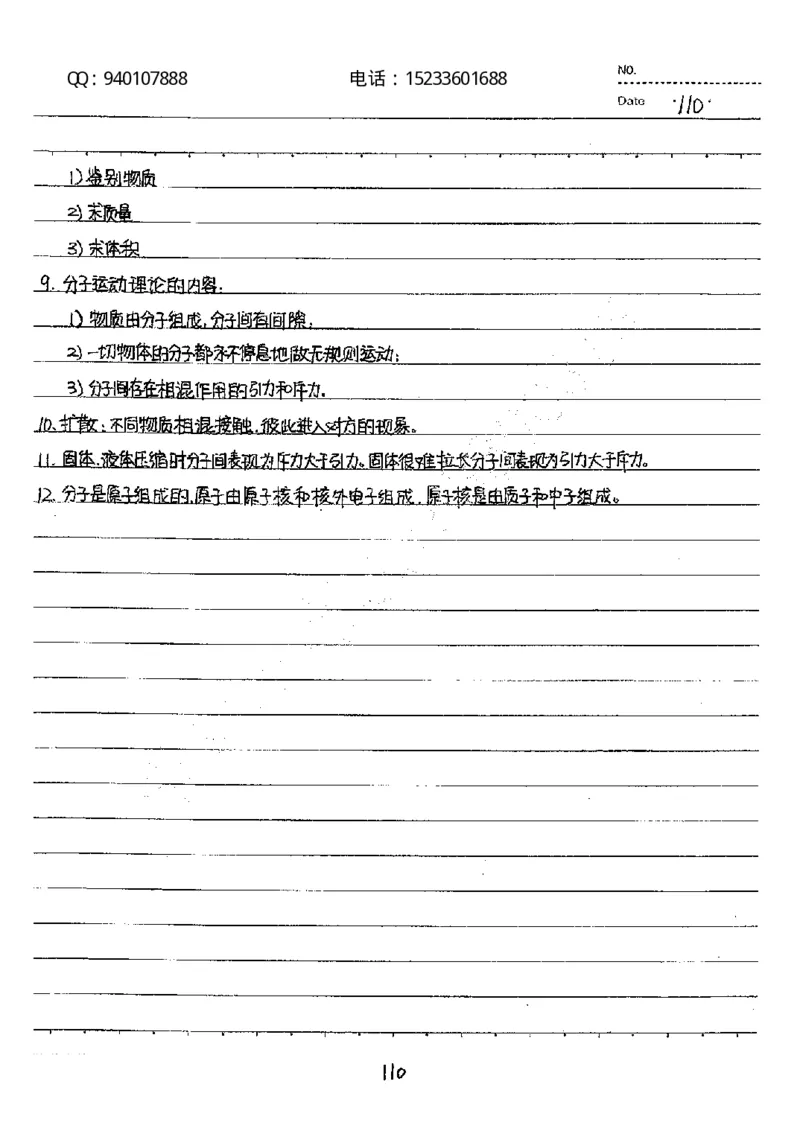 QQ：940107888 电话：15233601688 NO.
Date ·110·
1) 鉴别物质
2) 求质量
3) 求体积
9. 分子运动理论的内容：
1) 物质由分子组成，分子间有间隙；
2) 一切物体的分子都永不停息地做无规则运动；
3) 分子间存在相混作用的引力和斥力。
10. 扩散：不同物质相混接触，彼此进入对方的现象。
11. 固体、液体压缩时分子间表现为斥力大于引力。固体很难拉长分子间表现为引力大于斥力。
12. 分子是原子组成的，原子由原子核和核外电子组成，原子核是由质子和中子组成。
110